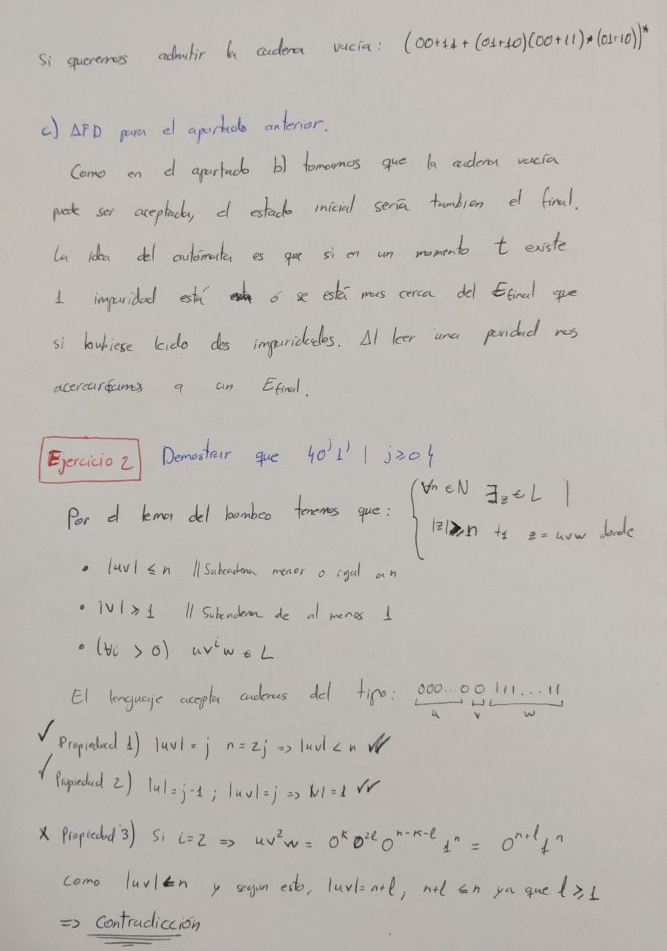 Si queremos admitir la cadena vacía: (00+11+(01+10)(00+11)*(01+10))*
c) AFD para el apartado anterior.
Como en el apartado b) tomamos que la cadena vacía
puede ser aceptada, el estado inicial sería tambien el final.
La idea del autómata es que si en un momento t existe
1 imparidad está ó se está mas cerca del Efinal que
si hubiese leido dos imparidades. Al leer una paridad nos
acercaríamos a un Efinal.
Ejercicio 2 Demostrar que {0^j 1^j | j≥0}
Por el lema del bombeo tenemos que: { ∀n ∈ N ∃z ∈ L |
|z|≥n tq z = uvw donde
• |uv| ≤ n // Subcadena menor o igal a n
• |v| ≥ 1 // Subcadena de al menos 1
• (∀i > 0) uv^i w ∈ L
El lenguaje acepta cadenas del tipo: 000...00 111...11
u v w
✓ Propiedad 1) |uv| = j n = 2j => |uv| < n ✓✓
✓ Propiedad 2) |u| = j-1 ; |uv| = j => |v| = 1 ✓✓
x Propiedad 3) Si i=2 => uv²w = 0^k 0^2l 0^n-k-l 1^n = 0^n+l 1^n
como |uv| ≤ n y segun esto, |uv| = n+l, n+l ≤ n ya que l ≥ 1
=> Contradicción